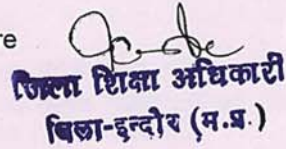 re
जिला शिक्षा अधिकारी
जिला-इन्दौर (म.प्र.)